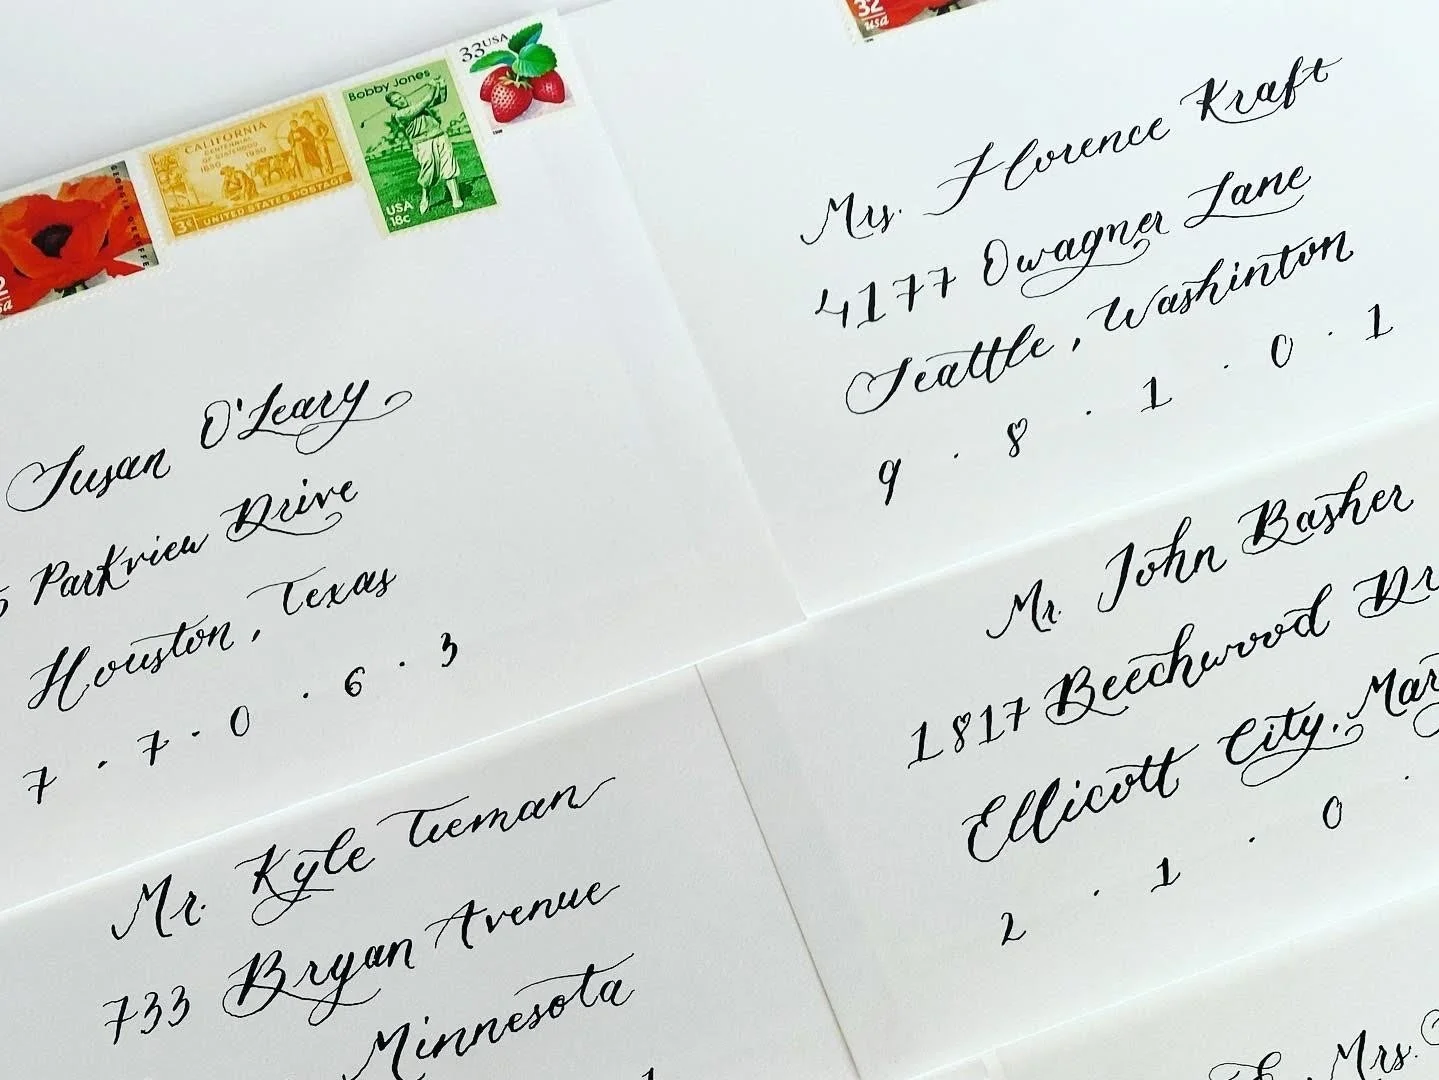 33USA
Bobby Jones
USA
18c
CALIFORNIA
CENTENNIAL
OF STATEHOOD
1850 1950
3¢ UNITED STATES POSTAGE
32
usa
Susan O'Leary
Parkview Drive
Houston, Texas
7 . 7 . 0 . 6 . 3
Mrs. Florence Kraft
4177 Owagner Lane
Seattle, Washinton
9 . 8 . 1 . 0 . 1
Mr. Kyle Tieman
733 Bryan Avenue
Minnesota
1
Mr. John Basher
1817 Beechwood Dr
Ellicott City, Mar
2 . 1 . 0 .
Mrs.